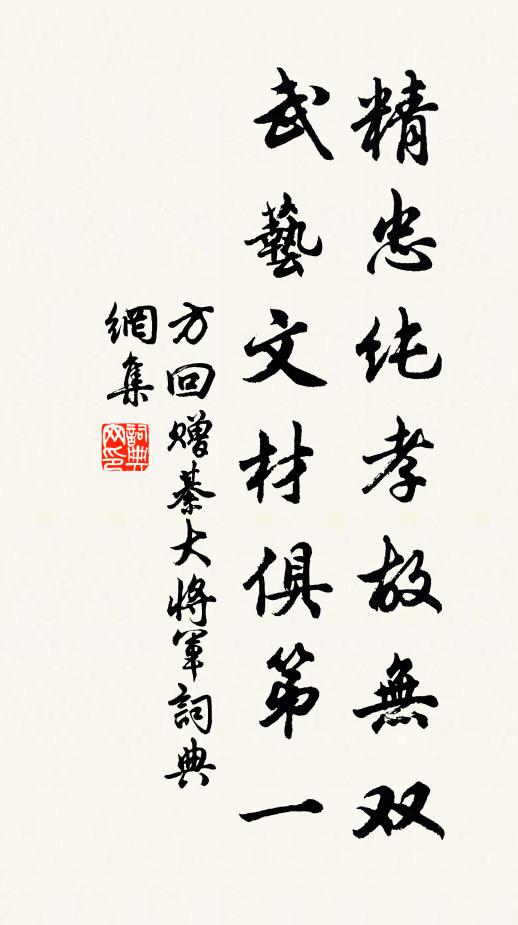 精忠纯孝故無双
武藝文材俱第一
方回贈綦大将軍詞典
網集
詞典
网印